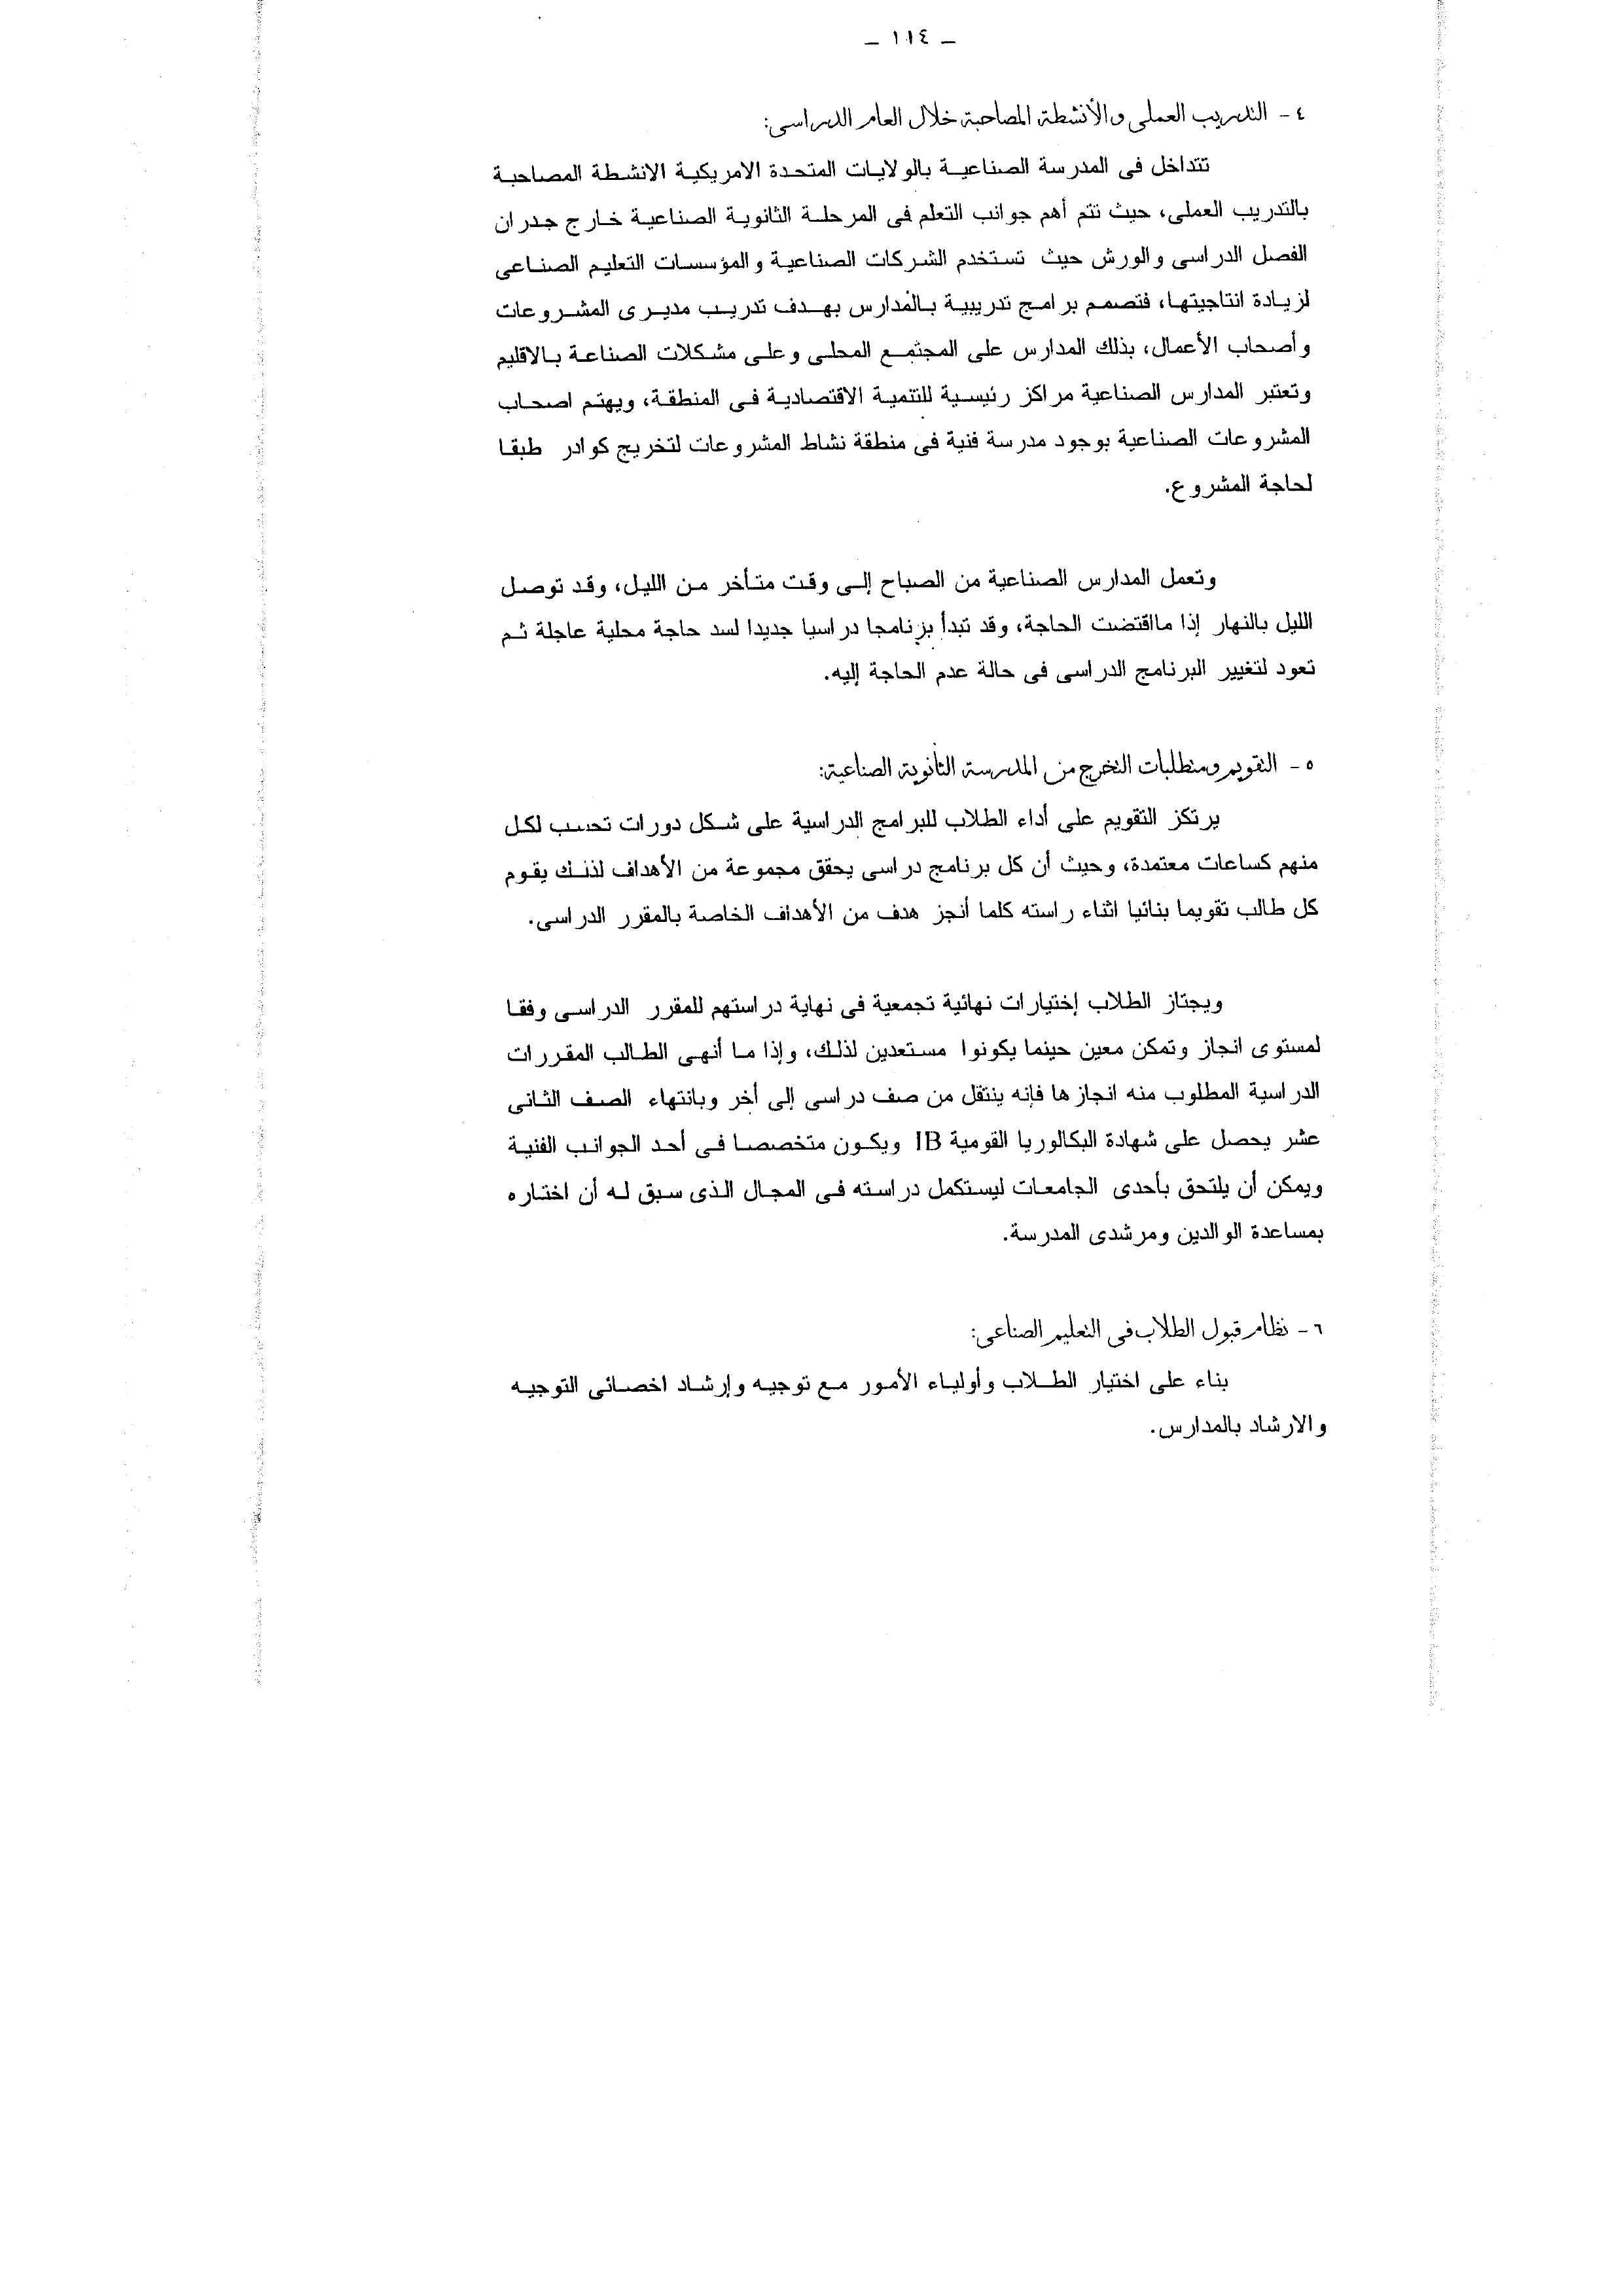 - ١١٤ -
٤ - التدريب العملى والأنشطة المصاحبة خلال العام الدراسى:
تتداخل فى المدرسة الصناعية بالولايات المتحدة الامريكية الانشطة المصاحبة
بالتدريب العملى، حيث تتم أهم جوانب التعلم فى المرحلة الثانوية الصناعية خارج جدران
الفصل الدراسى والورش حيث تستخدم الشركات الصناعية والمؤسسات التعليم الصناعى
لزيادة انتاجيتها، فتصمم برامج تدريبية بالمدارس بهدف تدريب مديرى المشروعات
وأصحاب الأعمال، بذلك المدارس على المجتمع المحلى وعلى مشكلات الصناعة بالاقليم
وتعتبر المدارس الصناعية مراكز رئيسية للتنمية الاقتصادية فى المنطقة، ويهتم اصحاب
المشروعات الصناعية بوجود مدرسة فنية فى منطقة نشاط المشروعات لتخريج كوادر طبقا
لحاجة المشروع.
وتعمل المدارس الصناعية من الصباح إلى وقت متأخر من الليل، وقد توصل
الليل بالنهار إذا مااقتضت الحاجة، وقد تبدأ برنامجا دراسيا جديدا لسد حاجة محلية عاجلة ثم
تعود لتغيير البرنامج الدراسى فى حالة عدم الحاجة إليه.
٥ - التقويم ومتطلبات التخرج من المدرسة الثانوية الصناعية:
يرتكز التقويم على أداء الطلاب للبرامج الدراسية على شكل دورات تحسب لكل
منهم كساعات معتمدة، وحيث أن كل برنامج دراسى يحقق مجموعة من الأهداف لذلك يقوم
كل طالب تقويما بنائيا اثناء راسته كلما أنجز هدف من الأهداف الخاصة بالمقرر الدراسى.
ويجتاز الطلاب إختيارات نهائية تجمعية فى نهاية دراستهم للمقرر الدراسى وفقا
لمستوى انجاز وتمكن معين حينما يكونوا مستعدين لذلك، وإذا ما أنهى الطالب المقررات
الدراسية المطلوب منه انجازها فإنه ينتقل من صف دراسى إلى أخر وبانتهاء الصف الثانى
عشر يحصل على شهادة البكالوريا القومية IB ويكون متخصصا فى أحد الجوانب الفنية
ويمكن أن يلتحق بأحدى الجامعات ليستكمل دراسته فى المجال الذى سبق له أن اختاره
بمساعدة الوالدين ومرشدى المدرسة.
٦ - نظام قبول الطلاب فى التعليم الصناعى:
بناء على اختيار الطلاب وأولياء الأمور مع توجيه وإرشاد اخصائى التوجيه
والارشاد بالمدارس.